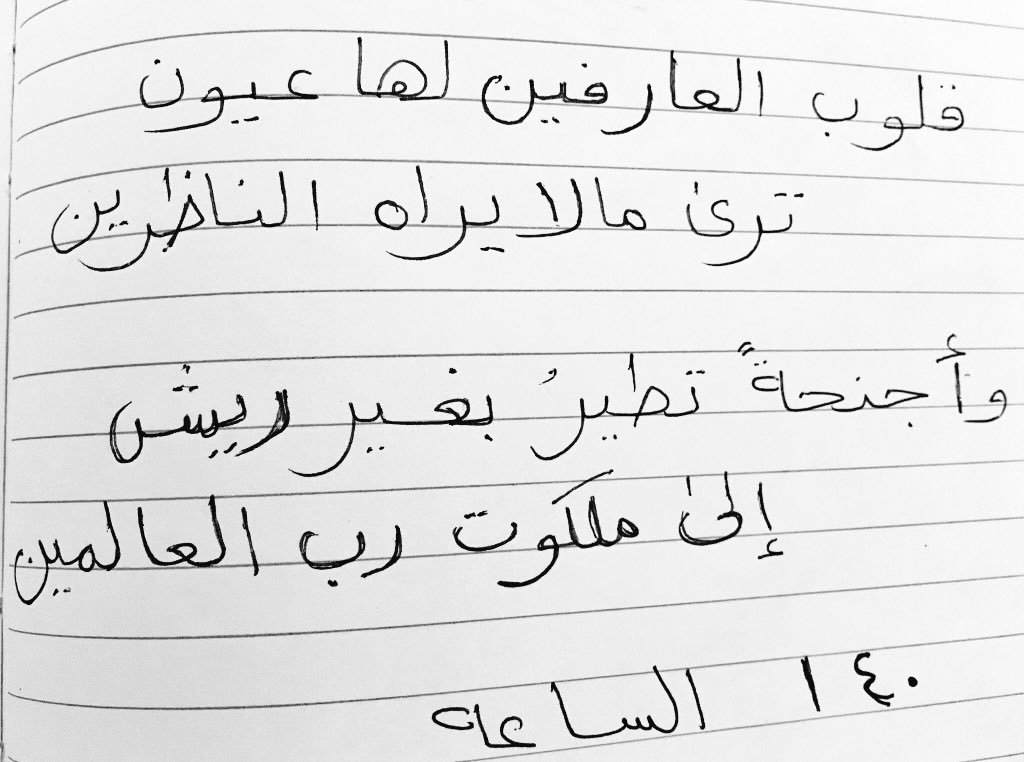 قلوب العارفين لها عيون
ترىٰ مالا يراه الناظرين
وأجنحةً تطيرُ بغير ريش
إلىٰ ملكوت رب العالمين
٠٤ ١ الساعه